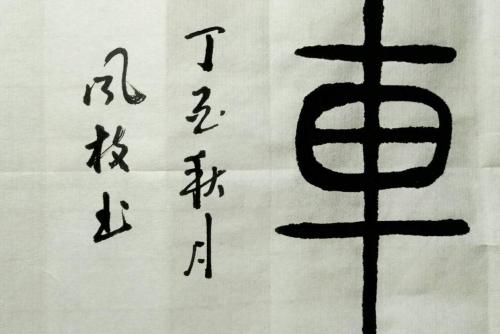 車
丁亥秋月
风枝书